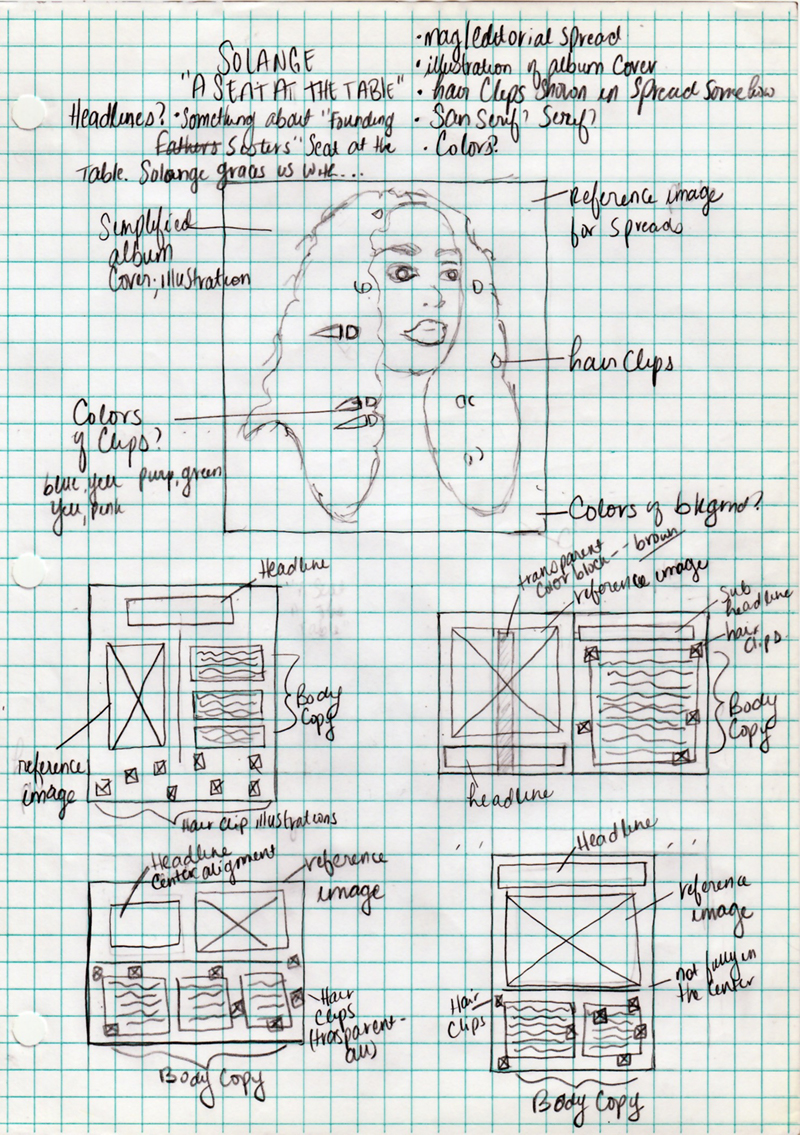 SOLANGE
"A SEAT AT THE TABLE"
• mag/editorial spread
• illustration of album cover
• hair clips shown in spread somehow
• San Serif? Serif?
• Colors?
Headlines? • Something about "Founding
Fathers Sisters" Seat at the
Table. Solange graces us with...
Simplified
album
Cover; illustration
reference image
for spreads
hair clips
Colors
of Clips?
blue, yell purp, green
Yell, pink
Colors of bkgrnd?
Headline
Body
Copy
reference
image
Hair clip illustrations
transparent
color block -- brown
reference image
Sub
headline
hair
clips
Body
Copy
headline
Headline
Center alignment
reference
image
Hair
Clips
(trasparent-
all)
Body Copy
Headline
reference
image
not fully in
the center
Hair
Clips
Body Copy